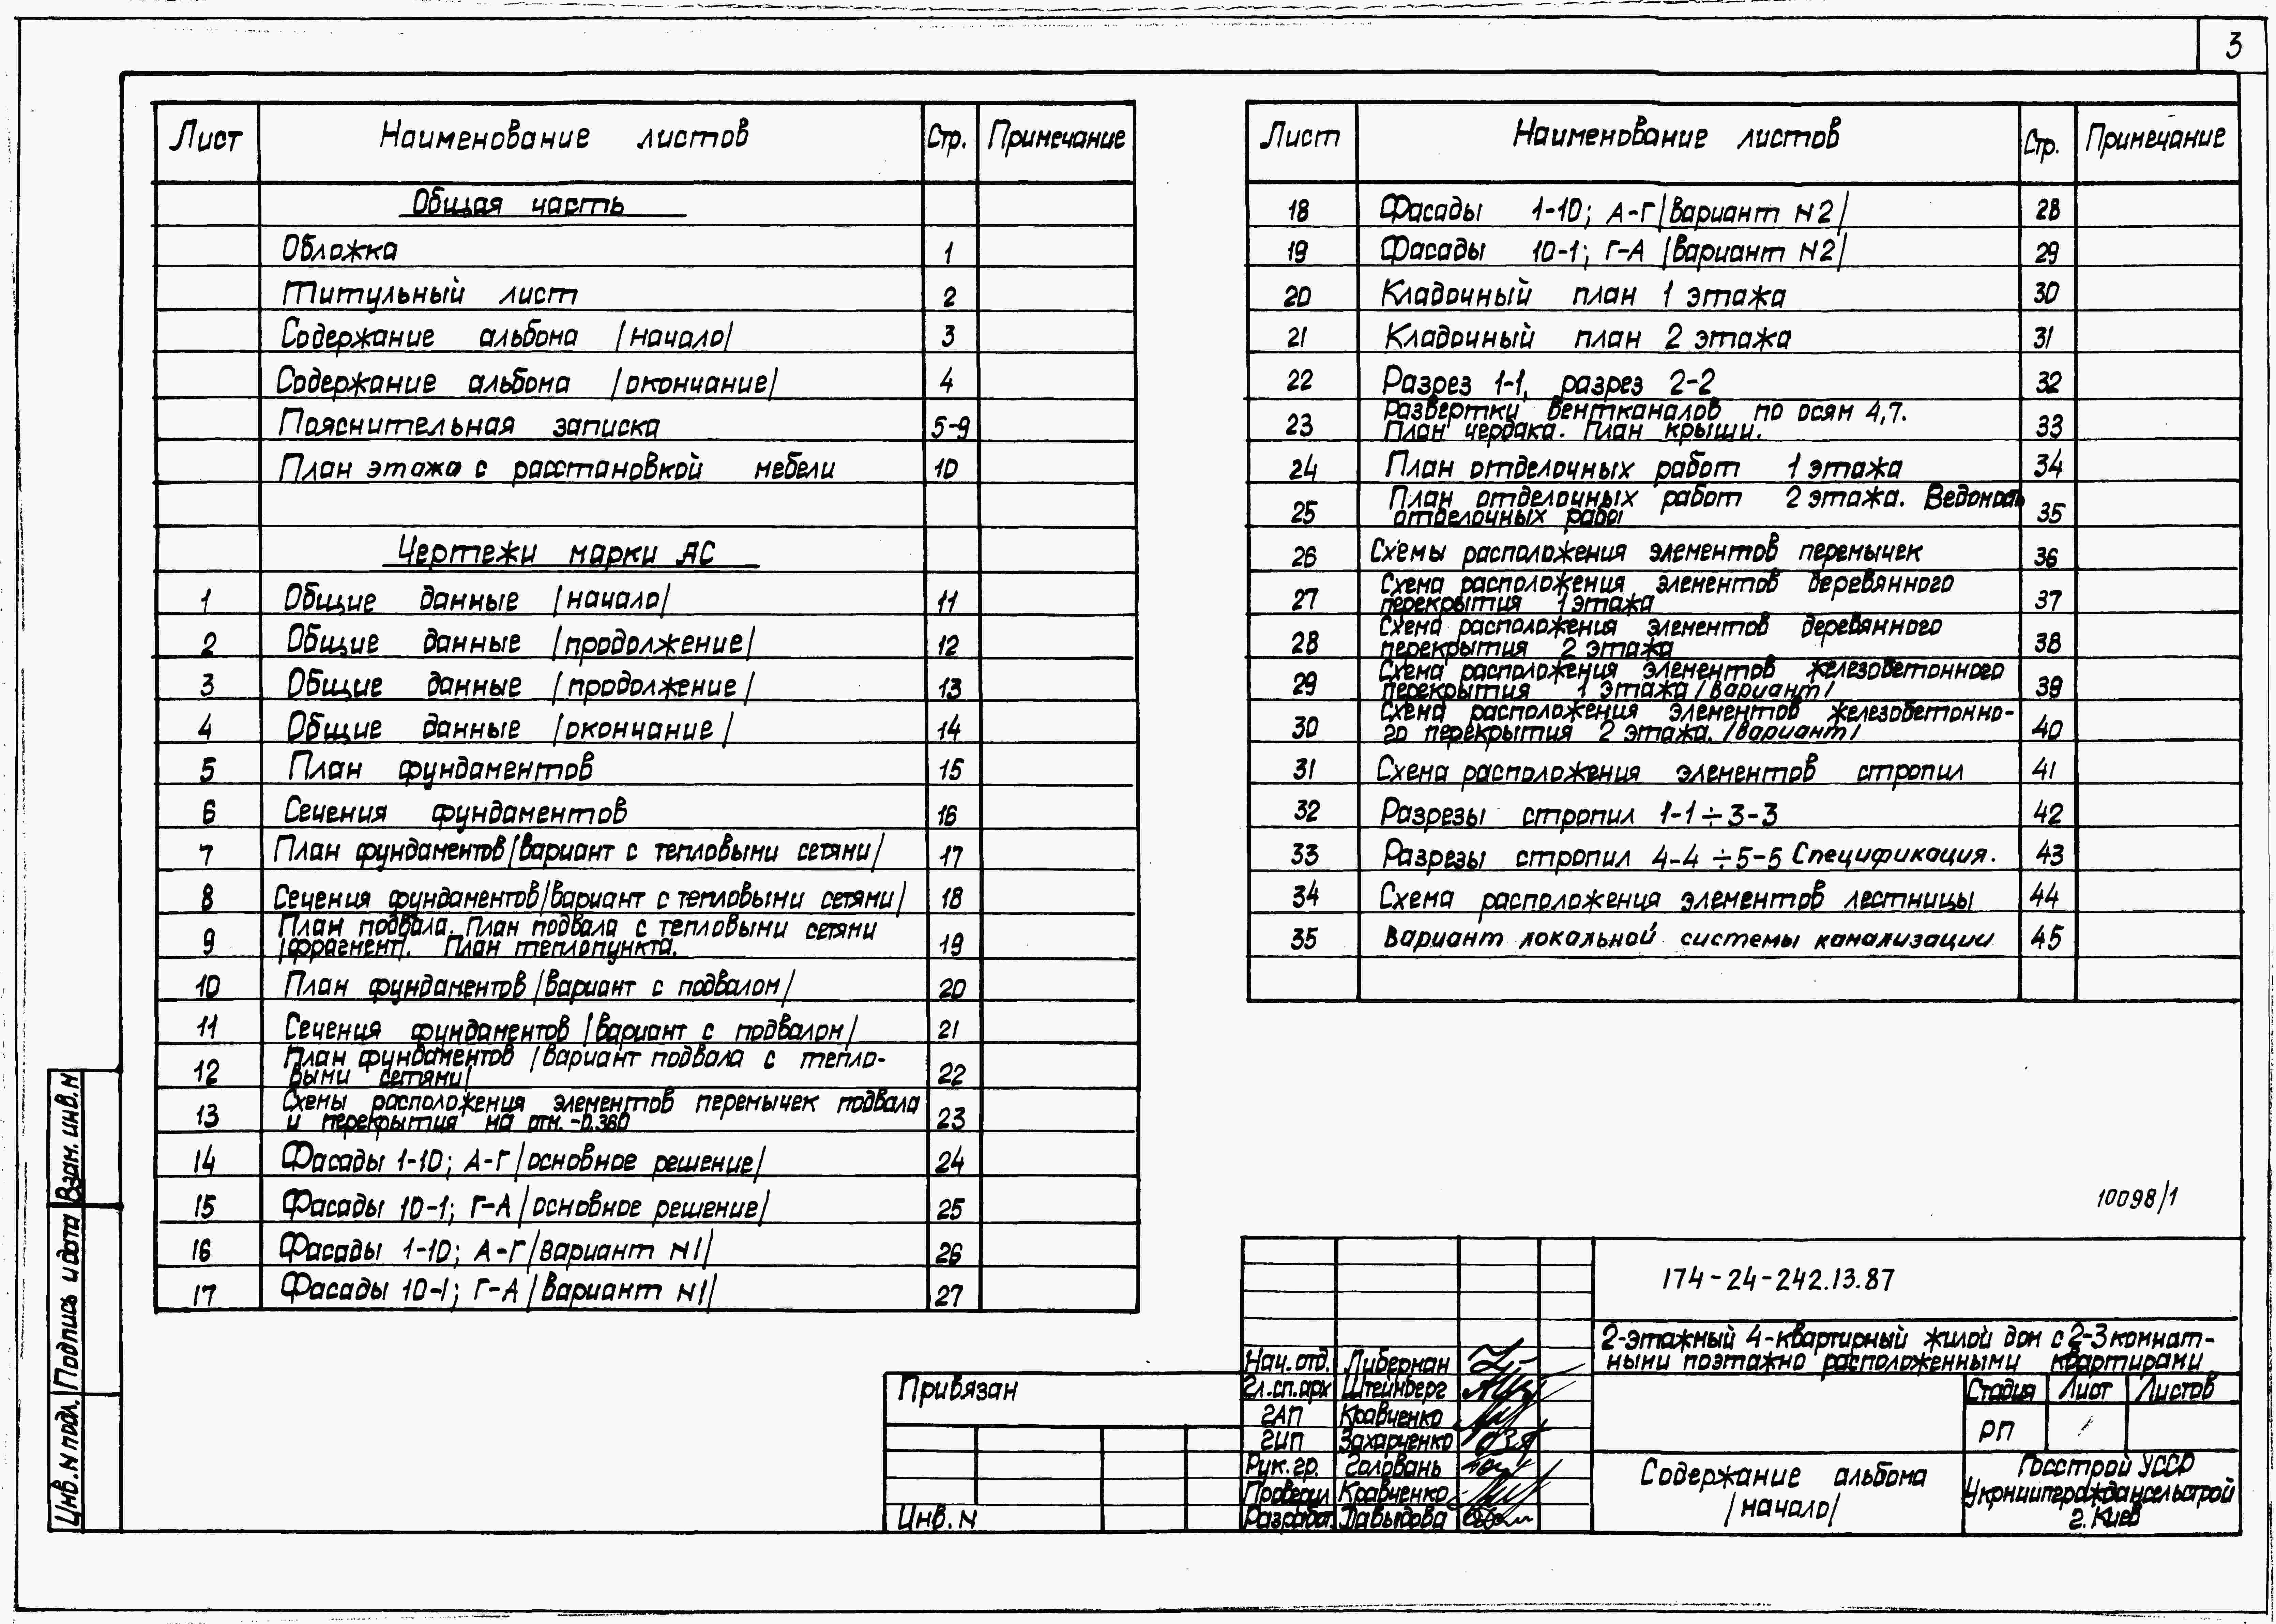 3
Лист Наименование листов Стр. Примечание
Общая часть
Обложка 1
Титульный лист 2
Содержание альбома /начало/ 3
Содержание альбома /окончание/ 4
Пояснительная записка 5-9
План этажа с расстановкой мебели 10
Чертежи марки АС
1 Общие данные /начало/ 11
2 Общие данные /продолжение/ 12
3 Общие данные /продолжение/ 13
4 Общие данные /окончание/ 14
5 План фундаментов 15
6 Сечения фундаментов 16
7 План фундаментов /вариант с тепловыми сетями/ 17
8 Сечения фундаментов /вариант с тепловыми сетями/ 18
9 План подвала. План подвала с тепловыми сетями
/фрагмент/. План теплопункта. 19
10 План фундаментов /вариант с подвалом/ 20
11 Сечения фундаментов /вариант с подвалом/ 21
12 План фундаментов /вариант подвала с тепло-
выми сетями/ 22
13 Схемы расположения элементов перемычек подвала
и перекрытия на отм. -0.380 23
14 Фасады 1-10; А-Г /основное решение/ 24
15 Фасады 10-1; Г-А /основное решение/ 25
16 Фасады 1-10; А-Г /вариант N1/ 26
17 Фасады 10-1; Г-А /вариант N1/ 27
Лист Наименование листов Стр. Примечание
18 Фасады 1-10; А-Г /вариант N2/ 28
19 Фасады 10-1; Г-А /вариант N2/ 29
20 Кладочный план 1 этажа 30
21 Кладочный план 2 этажа 31
22 Разрез 1-1, разрез 2-2 32
23 Развертки вентканалов по осям 4,7.
План чердака. План крыши. 33
24 План отделочных работ 1 этажа 34
25 План отделочных работ 2 этажа. Ведомость
отделочных работ 35
26 Схемы расположения элементов перемычек 36
27 Схема расположения элементов деревянного
перекрытия 1 этажа 37
28 Схема расположения элементов деревянного
перекрытия 2 этажа 38
29 Схема расположения элементов железобетонного
перекрытия 1 этажа /вариант/ 39
30 Схема расположения элементов железобетонно-
го перекрытия 2 этажа. /вариант/ 40
31 Схема расположения элементов стропил 41
32 Разрезы стропил 1-1÷3-3 42
33 Разрезы стропил 4-4÷5-5 Спецификация. 43
34 Схема расположения элементов лестницы 44
35 Вариант локальной системы канализации 45
10098/1
174-24-242.13.87
2-этажный 4-квартирный жилой дом с 2-3 комнат-
ными поэтажно расположенными квартирами
Стадия Лист Листов
РП
Содержание альбома
/начало/
Госстрой УССР
Укрниипграждансельстрой
г. Киев
Нач. отд. Либерман
Гл.сп.арх Штейнберг
ГАП Кравченко
ГИП Захарченко
Рук. гр. Головань
Проверил Кравченко
Разработ. Давыдова
Привязан
Инв. N
Взам. инв. N
Подпись и дата
Инв. N подл.